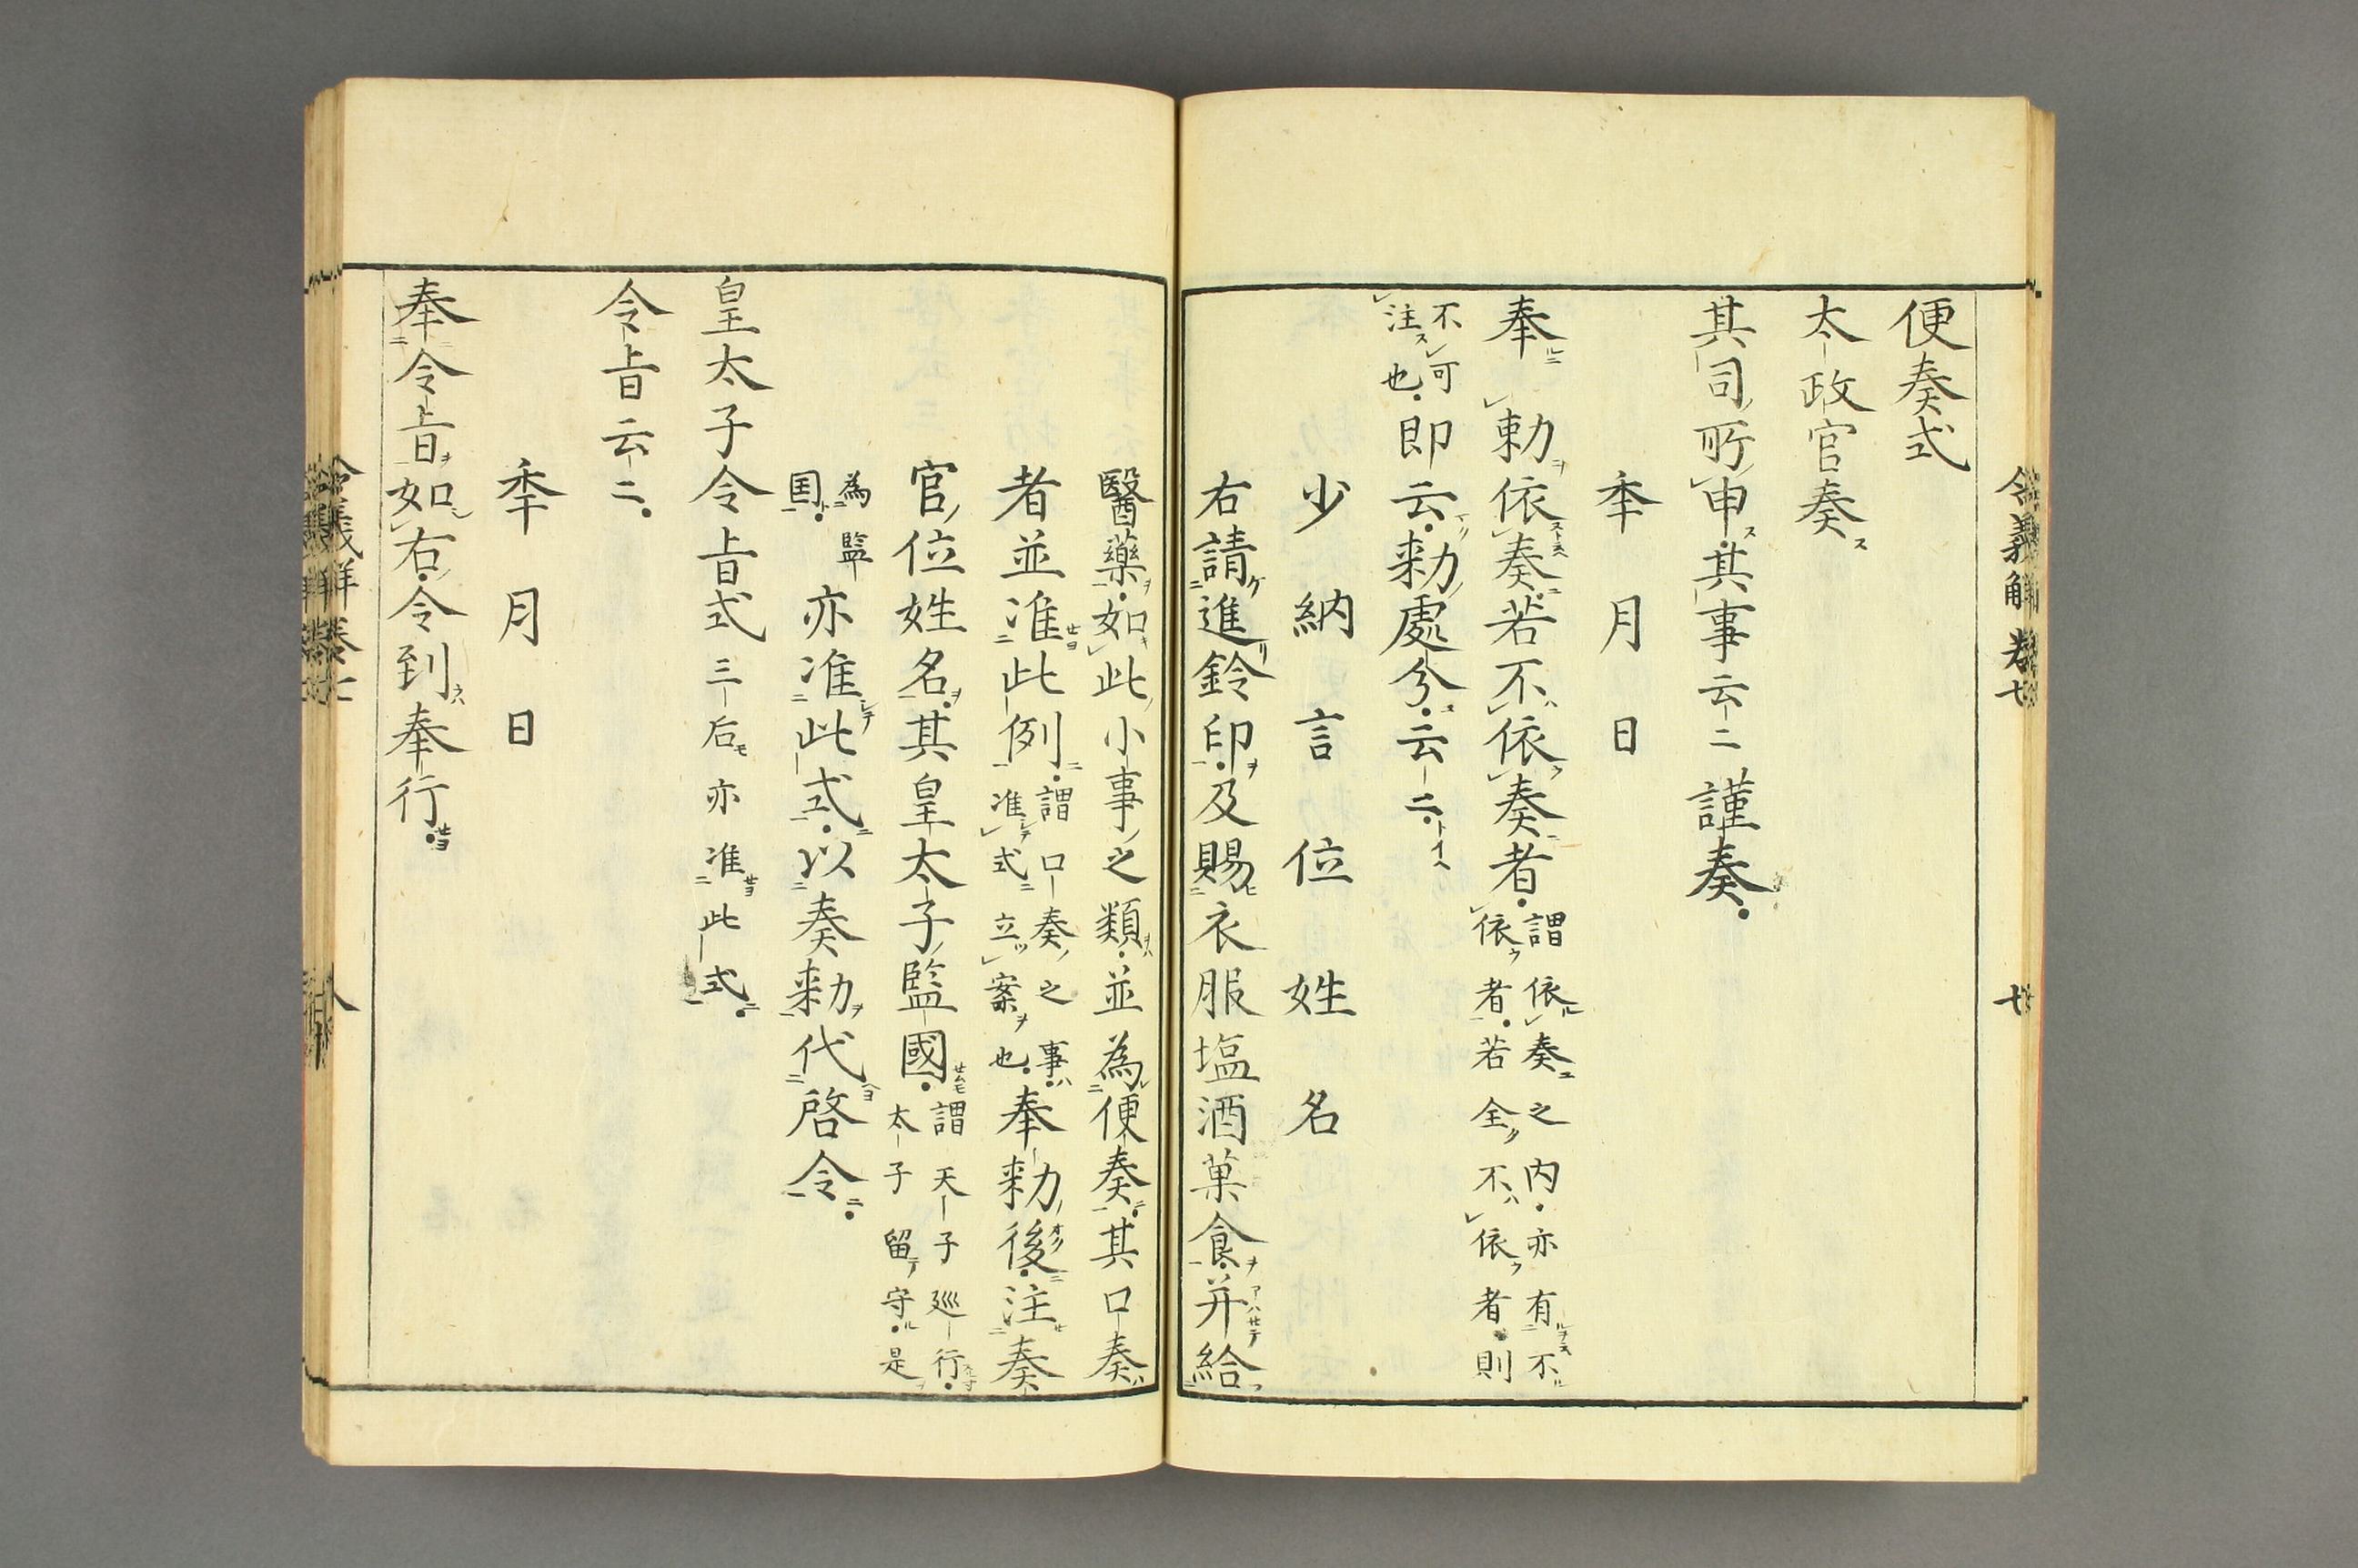 令義解巻七
七
便奏式
太政官奏ス
其司所申ス其事云二謹奏
年月日
奉勅依奏若不依奏者謂依奏之内亦有不依者若全不依者則
不可注也即云勅處分云二
少納言位姓名
右請進鈴印及賜衣服塩酒菓食并給
醫藥如此小事之類並為便奏其口奏
者並准此例謂口奏之事准式立案也奉勅後注奏
官位姓名其皇太子監國謂天子巡行太子留守是
為監国亦准此式以奏勅代啓令
皇太子令旨式三后亦准此式
令旨云二
年月日
奉令旨如右令到奉行
令義解巻七